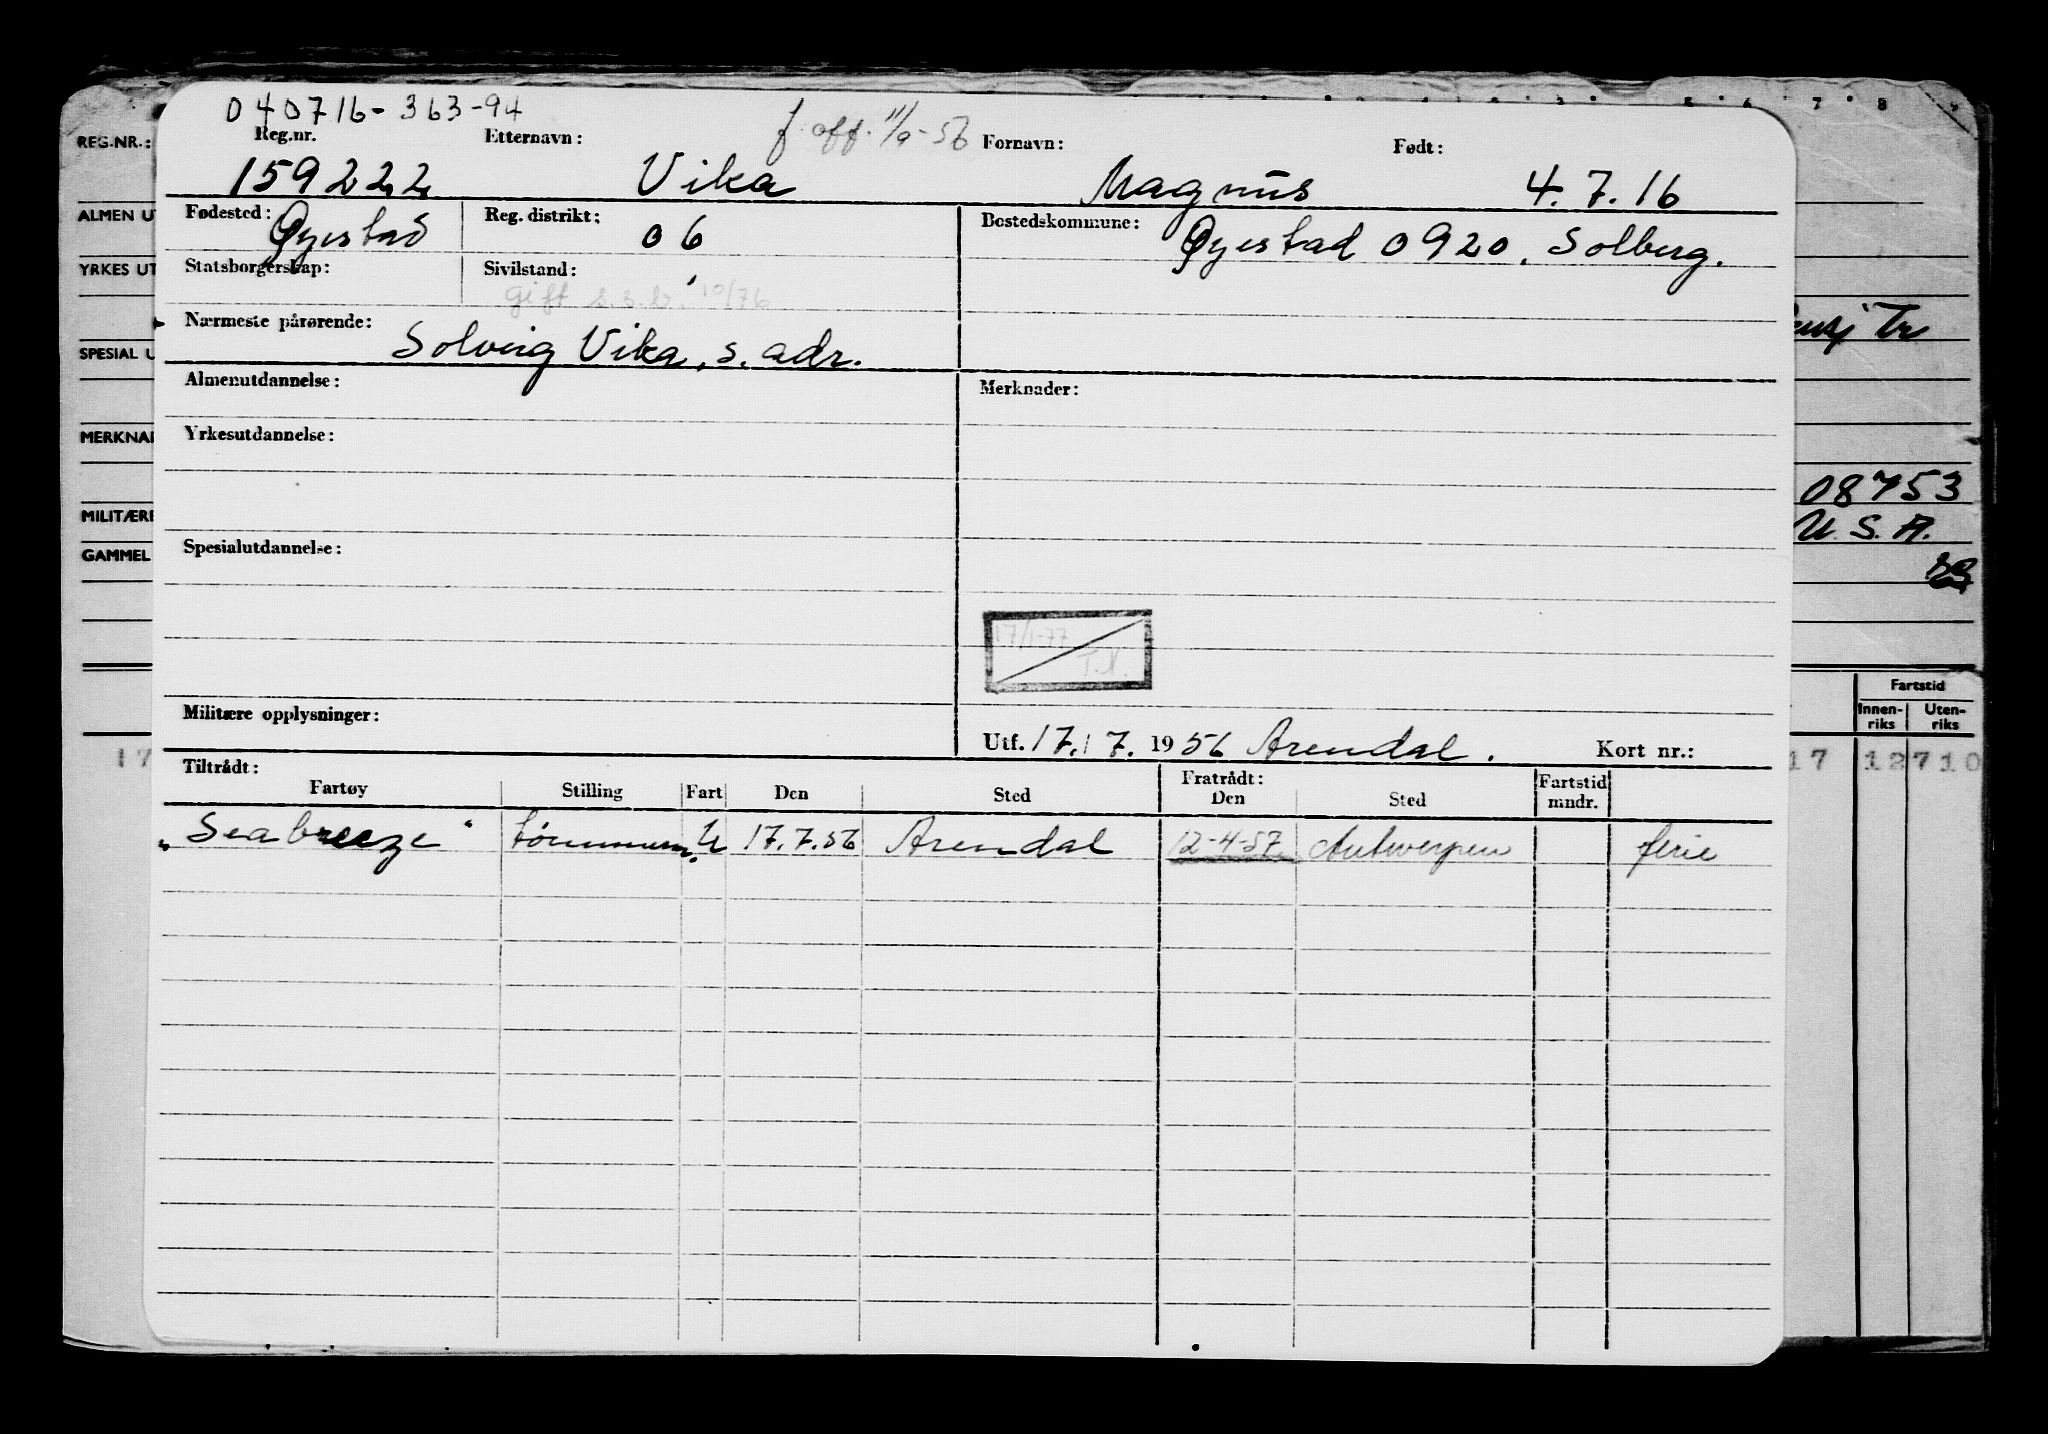 040716-363-94
REG.NR.: Reg.nr. Etternavn: f. off. 11/9-56 Fornavn: Født: 7 8
159222 Vika Magnus 4.7.16
ALMEN UT Fødested: Øyestad Reg. distrikt: 06 Bostedskommune: Øyestad 0920. Solberg.
YRKES UT Statsborgerskap: Sivilstand:
gift 10/76
Nærmeste pårørende: Solveig Vika, s. adr.
SPESIAL U
Almenutdannelse: Merknader:
MERKNAD Yrkesutdannelse:
08753
MILITÆRE U.S.A.
GAMMEL Spesialutdannelse:
17/1-77
T.N.
Fartstid
Militære opplysninger: Innen-riks Uten-riks
Utf. 17.7. 1956 Arendal. Kort nr.:
17 Tiltrådt: Fratrådt: 17 12 710
Fartøy Stilling Fart Den Sted Den Sted Fartstid mndr.
"Seabreeze" tømmerm. U 17.7.56 Arendal 12-4-57 Antwerpen ferie